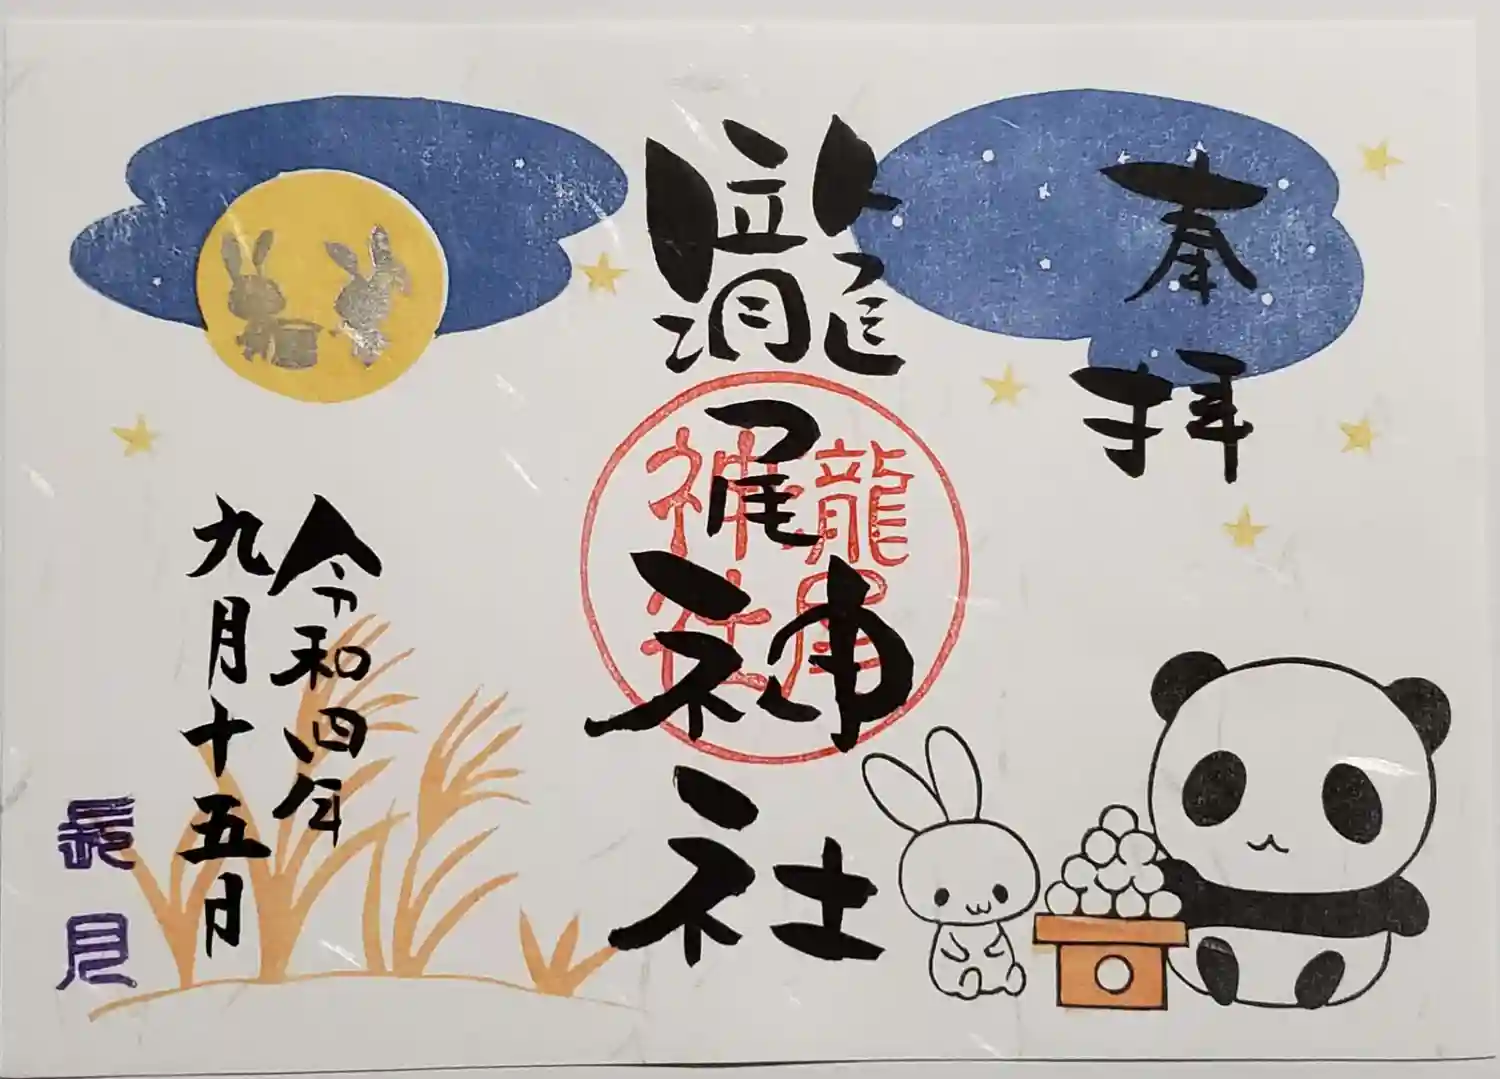 奉拝
龍尾神社
龍尾
神社
令和四年
九月十五日
長月